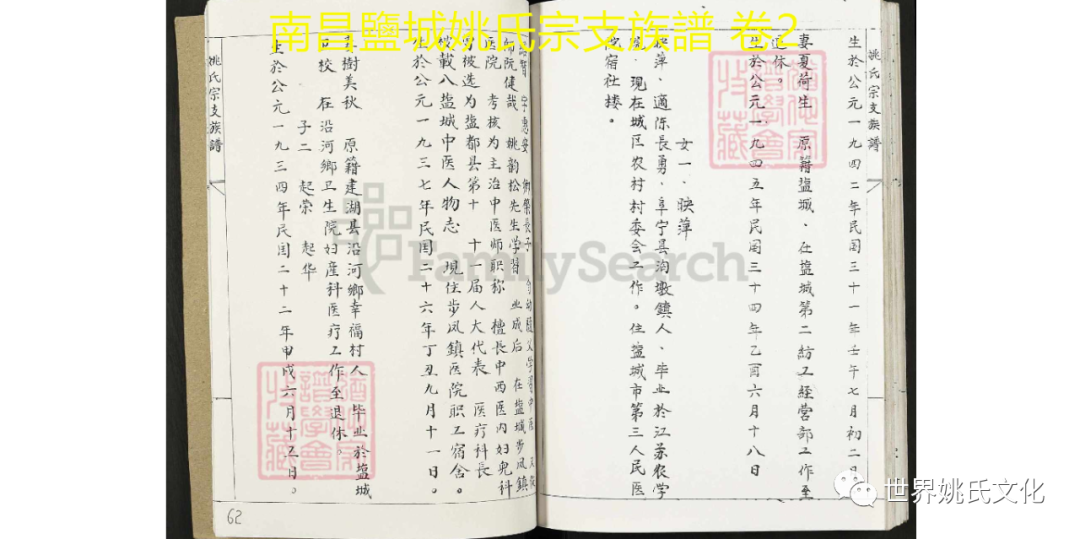 南昌鹽城姚氏宗支族譜 卷2
姚氏宗支族譜
生於公元一九四二年民国三十一年壬午七月初二日
妻夏荷生 原籍塩城、在塩城第二紡工経营部工作至
退休。
生於公元一九四五年民国三十四年乙酉六月十八日
女一、映萍
映萍、適陈長勇、阜宁县沟墩鎮人、毕业於江苏农学
院、现在城区农村村委会工作。住塩城市第三人民医
院宿社楼。
字惠安
长子
师阮健哉 姚韵松先生学習 业成后 在塩城步凤鎮
医院 考核为主治中医师职称 檀長中西医内妇児科
曾被选为塩都县第十 十一届人大代表 医疗科長
载入塩城中医人物志 现住步凤鎮医院职工宿舍。
生於公元一九三七年民国二十六年丁丑九月十一日。
妻樹美秋 原籍建湖县沿河鄉幸福村人 毕业於塩城
卫校 在沿河鄉卫生院妇産科医疗工作至退休。
子二 起崇 起华
生於公元一九三四年民国二十二年甲戌六月十五日。
姚氏宗支族譜
62
FamilySearch
世界姚氏文化